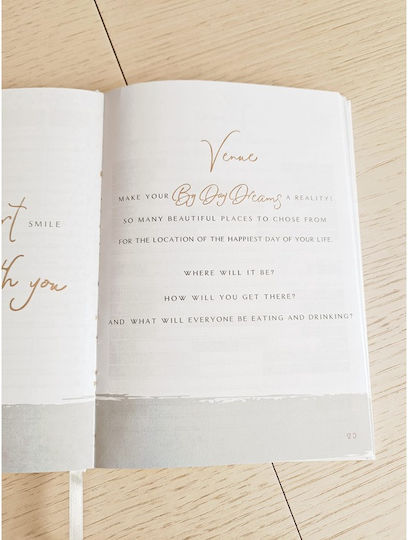 rt SMILE
th you
Venue
MAKE YOUR By Day Dreams A REALITY!
SO MANY BEAUTIFUL PLACES TO CHOSE FROM
FOR THE LOCATION OF THE HAPPIEST DAY OF YOUR LIFE.
WHERE WILL IT BE?
HOW WILL YOU GET THERE?
AND WHAT WILL EVERYONE BE EATING AND DRINKING?